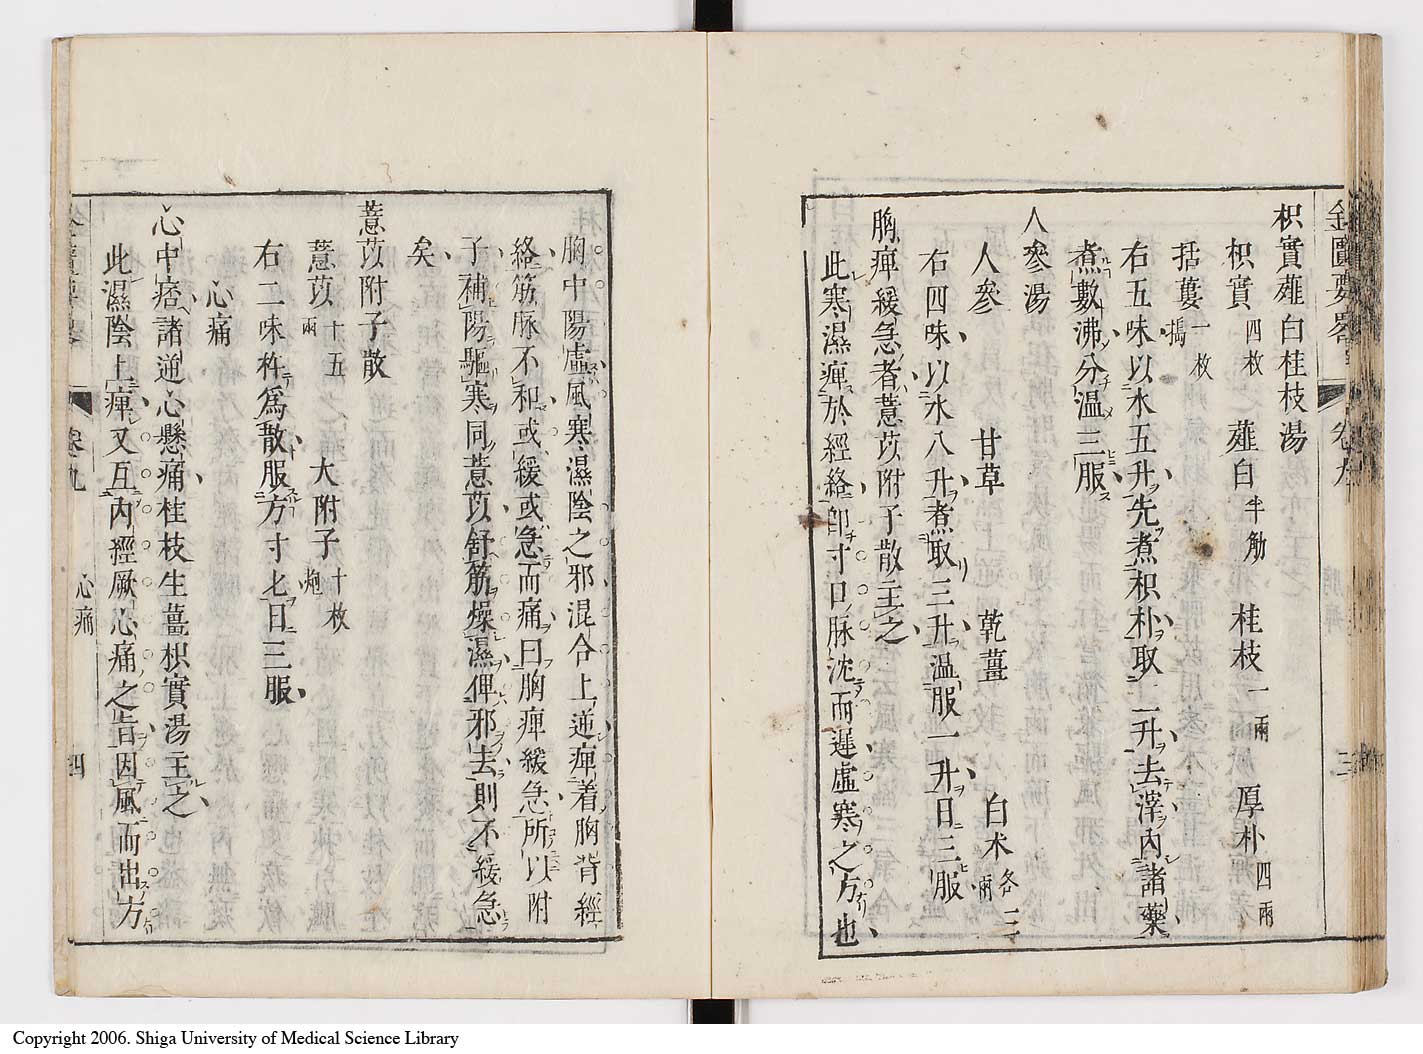 金匱要畧 卷九 三
枳實薤白桂枝湯
枳實四枚 薤白半觔 桂枝一兩 厚朴四兩
括蔞一枚擣
右五味以水五升先煮枳朴取二升去滓內諸藥
煮數沸分温三服
人參湯
人參 甘草 乾薑 白术各三兩
右四味以水八升煮取三升温服一升日三服
胸痺緩急者薏苡附子散主之
此寒濕痺於經絡卽寸口脉沈而遲虛寒之方也
胸中陽虛風寒濕陰之邪混合上逆痺着胸背經
絡筋脉不和或緩或急而痛曰胸痺緩急所以附
子補陽驅寒同薏苡舒筋燥濕俾邪去則不緩急
矣
薏苡附子散
薏苡十五兩 大附子十枚炮
右二味杵爲散服方寸匕日三服
心痛
心中痞諸逆心懸痛桂枝生薑枳實湯主之
此濕陰上痺又互內經厥心痛之旨因風而出方
卷九 心痛 四
Copyright 2006. Shiga University of Medical Science Library